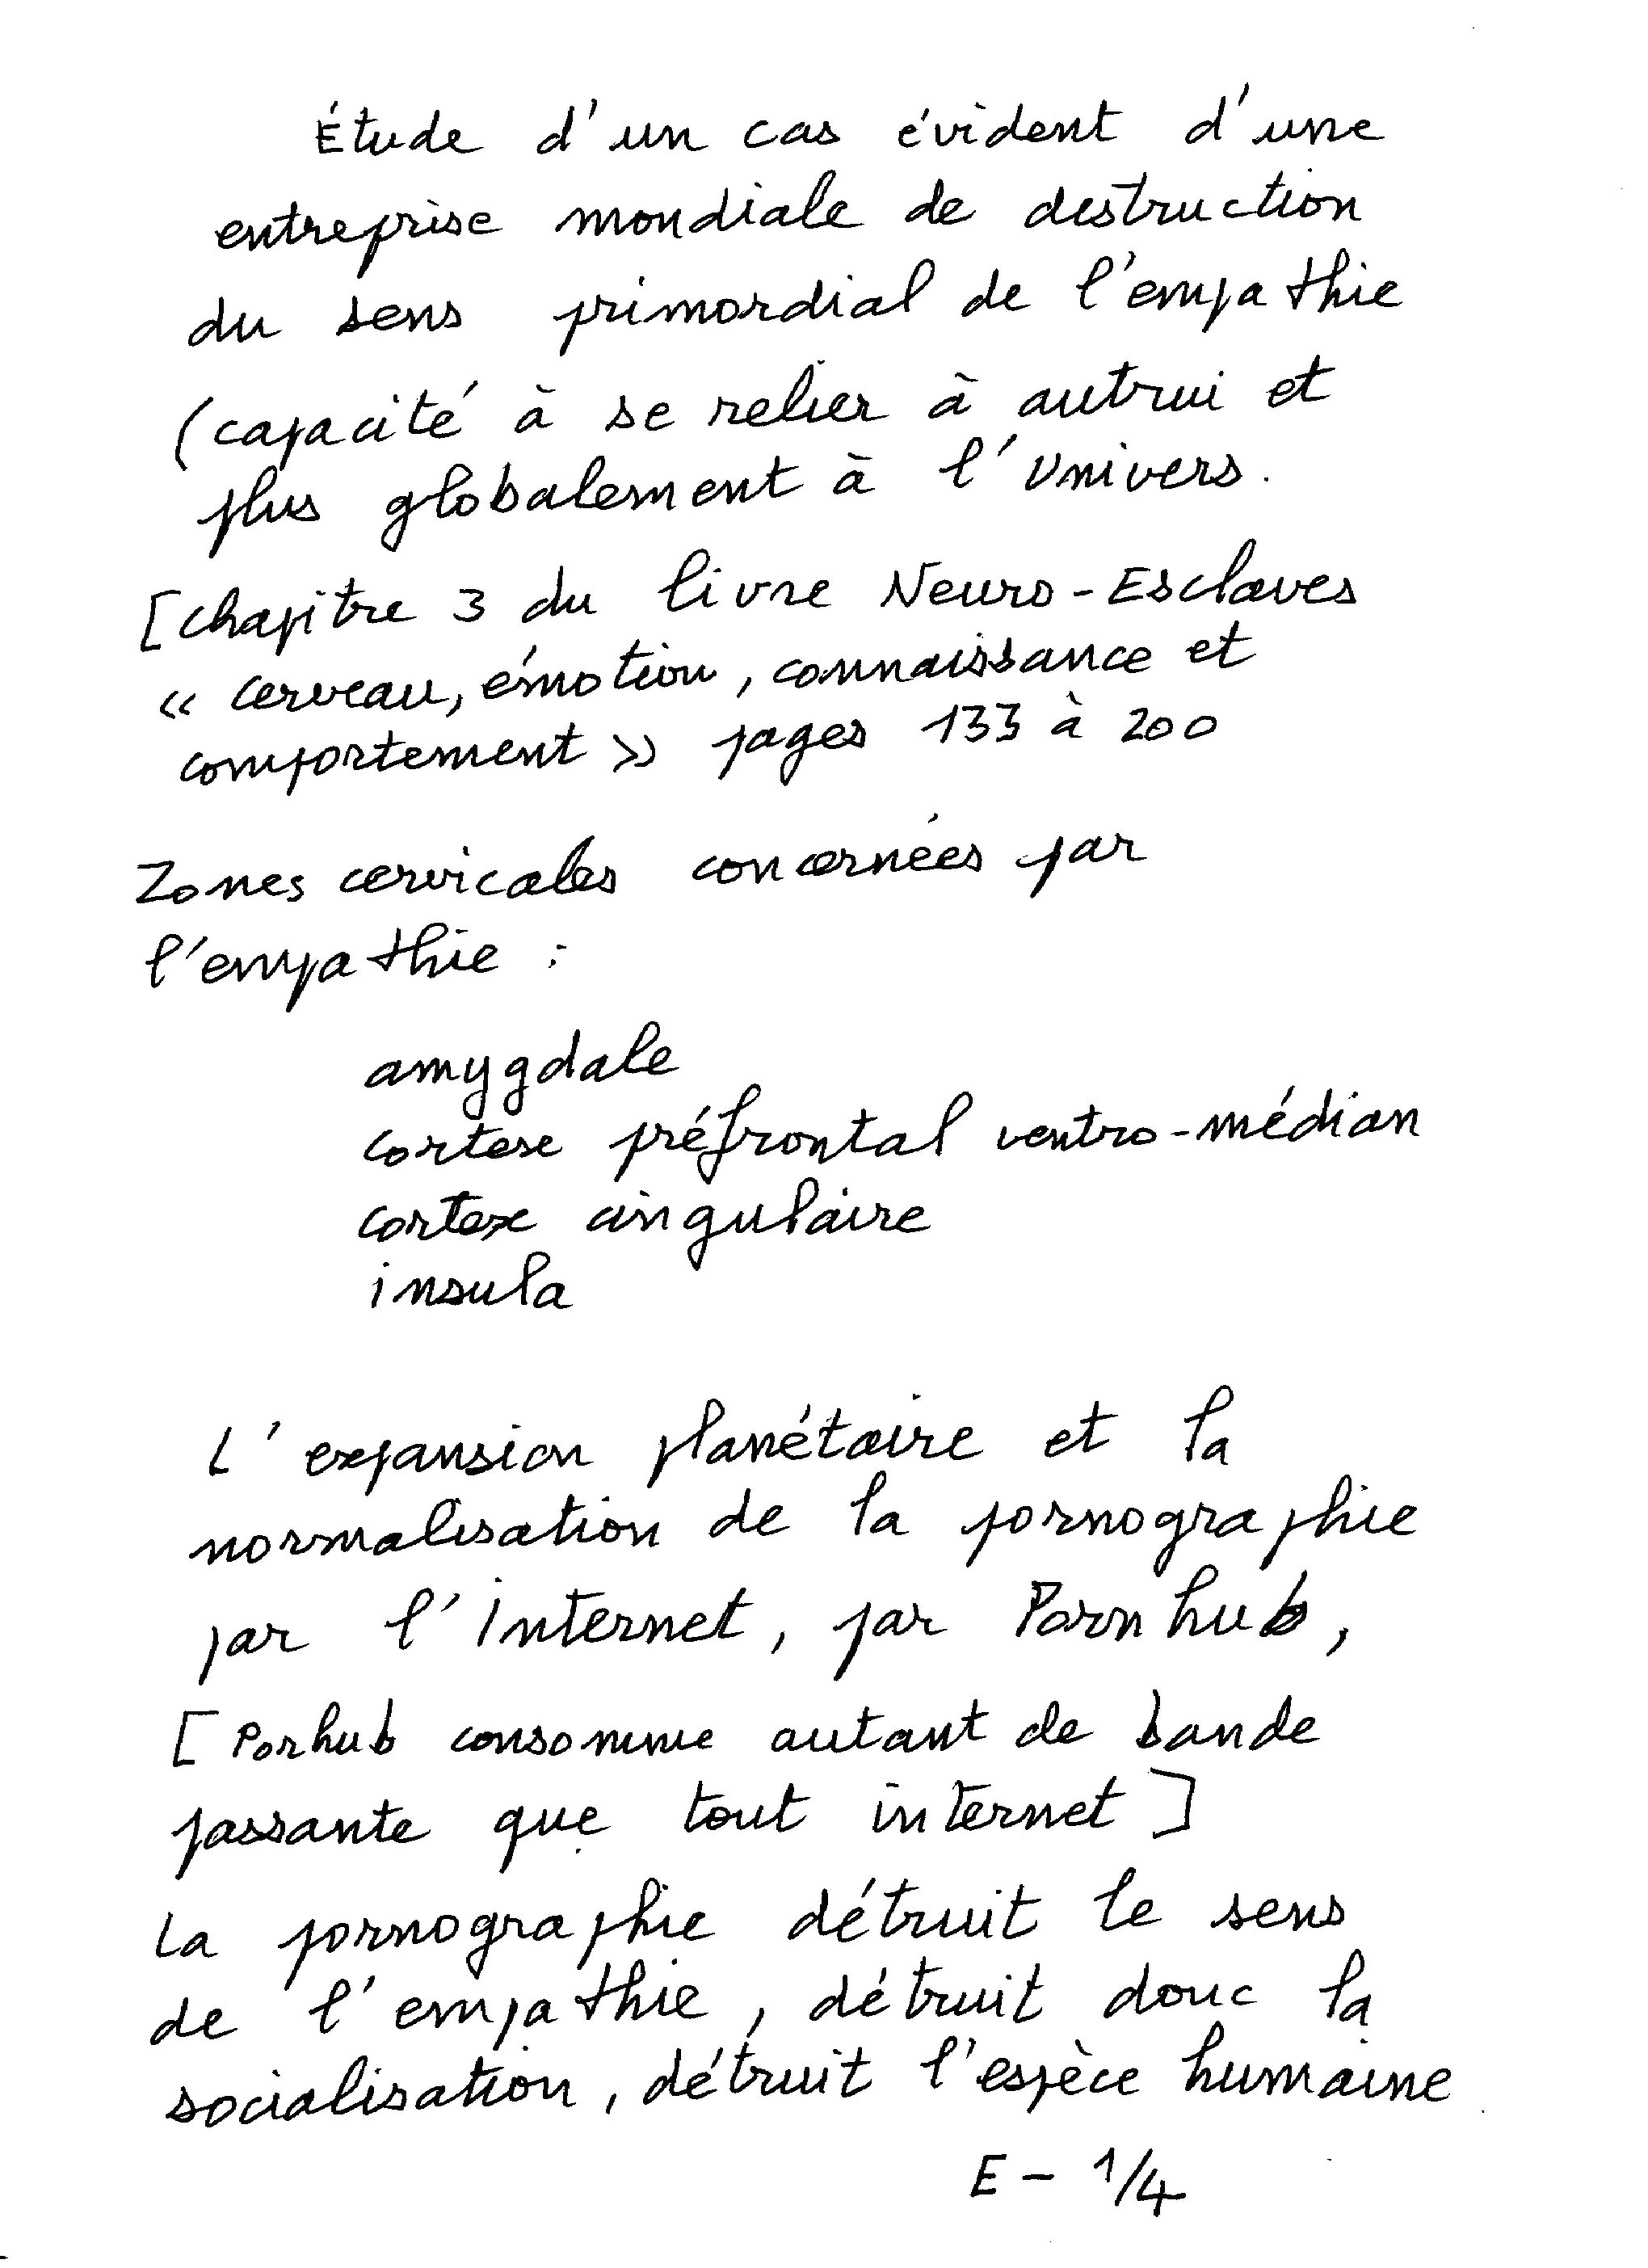 Étude d'un cas évident d'une
entreprise mondiale de destruction
du sens primordial de l'empathie
(capacité à se relier à autrui et
plus globalement à l'Univers.
[Chapitre 3 du livre Neuro-Esclaves
« cerveau, émotion, connaissance et
comportement » pages 133 à 200
Zones cervicales concernées par
l'empathie :
amygdale
cortex préfrontal ventro-médian
cortex cingulaire
insula
L'expansion planétaire et la
normalisation de la pornographie
par l'internet, par Pornhub,
[Porhub consomme autant de bande
passante que tout internet]
La pornographie détruit le sens
de l'empathie, détruit donc la
socialisation, détruit l'espèce humaine
E - 1/4